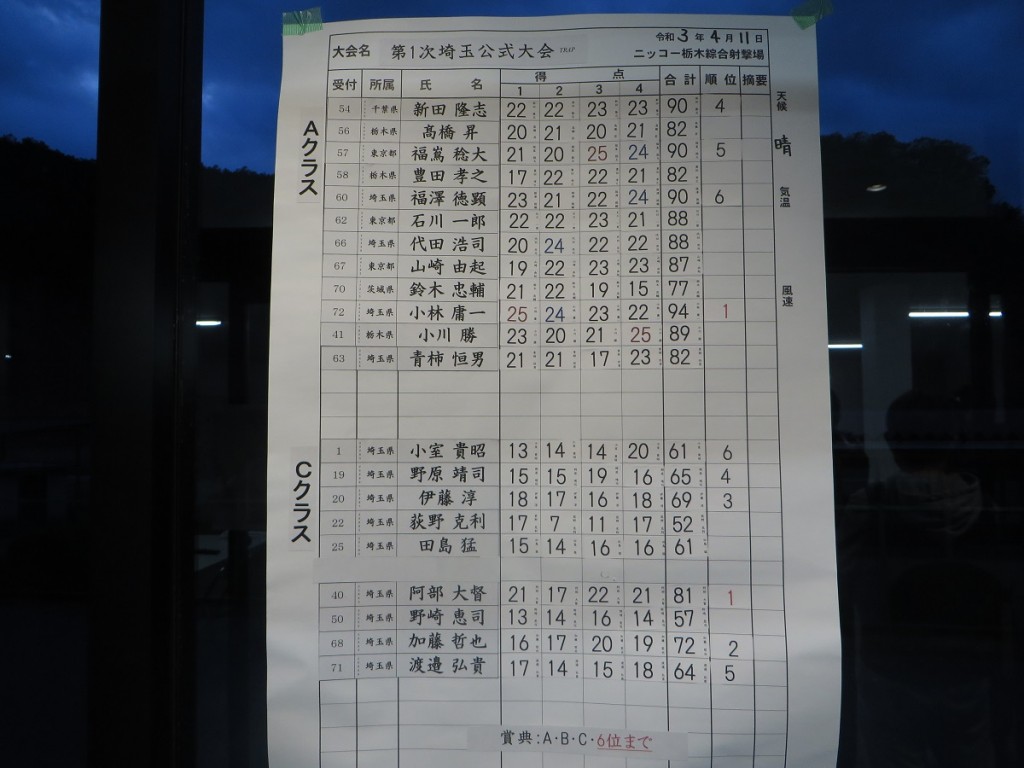 令和 3 年 4 月 11 日
大会名 第1次埼玉公式大会 TRAP ニッコー栃木綜合射撃場
受付 所属 氏 名 得 点 合計 順位 摘要
1 2 3 4
Aクラス
54 千葉県 新田 隆志 22 22 23 23 90 4
56 栃木県 髙橋 昇 20 21 20 21 82
57 東京都 福嶌 稔大 21 20 25 24 90 5
58 栃木県 豊田 孝之 17 22 22 21 82
60 埼玉県 福澤 徳顕 23 21 22 24 90 6
62 東京都 石川 一郎 22 22 23 21 88
66 埼玉県 代田 浩司 20 24 22 22 88
67 東京都 山崎 由起 19 22 23 23 87
70 茨城県 鈴木 忠輔 21 22 19 15 77
72 埼玉県 小林 庸一 25 24 23 22 94 1
41 栃木県 小川 勝 23 20 21 25 89
63 埼玉県 青柿 恒男 21 21 17 23 82
天候
晴
気温
風速
Cクラス
1 埼玉県 小室 貴昭 13 14 14 20 61 6
19 埼玉県 野原 靖司 15 15 19 16 65 4
20 埼玉県 伊藤 淳 18 17 16 18 69 3
22 埼玉県 荻野 克利 17 7 11 17 52
25 埼玉県 田島 猛 15 14 16 16 61
40 埼玉県 阿部 大督 21 17 22 21 81 1
50 埼玉県 野崎 恵司 13 14 16 14 57
68 埼玉県 加藤 哲也 16 17 20 19 72 2
71 埼玉県 渡邉 弘貴 17 14 15 18 64 5
賞典:A・B・C・6位まで